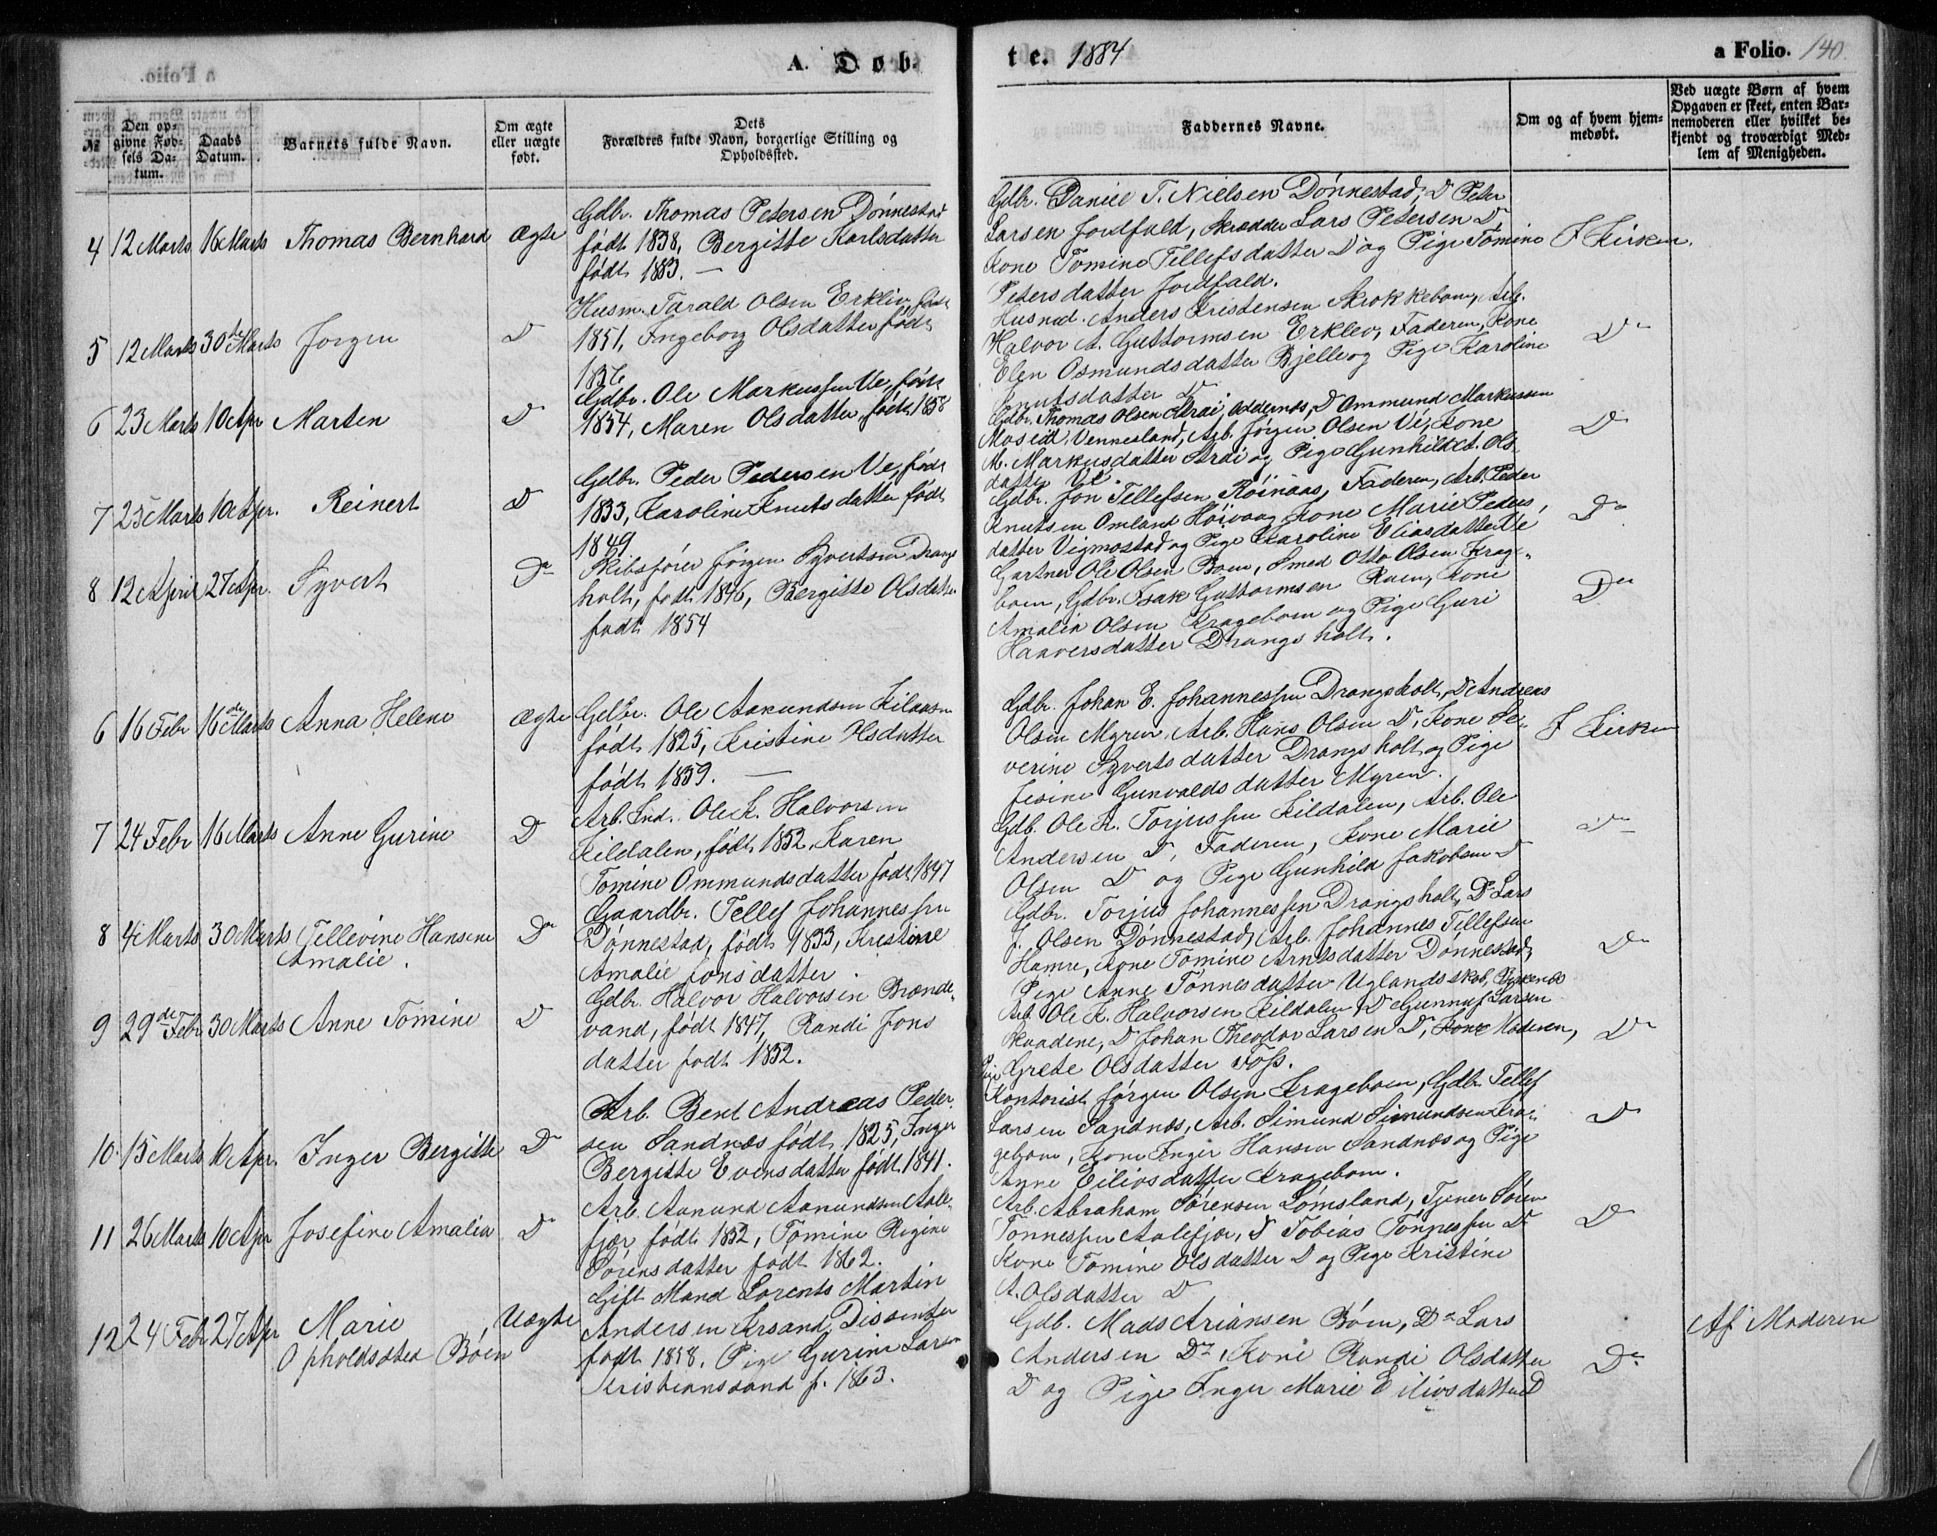 A. Døb-
te. 1884
a Folio. 140
№
Den op-
givne Fød-
sels Da-
tum.
Daabs
Datum.
Barnets fulde Navn.
Om ægte
eller uægte
født.
Dets
Forældres fulde Navn, borgerlige Stilling og
Opholdssted.
Faddernes Navne.
Om og af hvem hjem-
medøbt.
Ved uægte Børn af hvem
Opgaven er skeet, enten Bar-
nemoderen eller hvilket be-
kjendt og troværdigt Med-
lem af Menigheden.
4 12 Marts 16 Marts Thomas Bernhard Ægte
Gdbr. Thomas Petersen Dønnestad
født 1838, Bergitte Karlsdatter
født 1883. —
Gdbr. Daniel T. Nielsen Dønnestad, Do Peter
Larsen Jordfald, Skrædder Lars Petersen Do
Kone Tomine Tellefsdatter Do og Pige Tomine
Petersdatter Jordfald.
I Kirken.
5 12 Marts 30de Marts Jørgen Do
Husm. Tarald Olsen Erkliv, født
1851, Ingeborg Olsdatter født
1856
Husmd. Anders Kristensen Skrokkeboen, Arb.
Halvor A. Guttormsen Erklev, Faderen, Kone
Elen Osmundsdatter Bjelle og Pige Karoline
Knutsdatter Do
Do
6 23 Marts 10 Apr Marten Do
Gdbr. Ole Markussen Ve, født
1854, Maren Olsdatter, født 1858
Gdbr. Thomas Olsen Strai, Oddernes, Do Ommund Markussen
Moseid, Vennesland, Arb. Jørgen Olsen Ve, Kone
M. Markusdatter Strai og Pige Gunhild A. Ols
datter Ve.
Do
7 23 Marts 10 Apr. Reinert Do
Gdbr. Peder Pedersen Ve, født
1833, Karoline Knutsdatter født
1849
Gdbr. Jon Tellefsen Røinaas, Faderen, Arb. Peder
Knutsen Omland Høivaag, Kone Marie Peders,
datter Vigmostad og Pige Karoline Eliasdatter Ve
Do
8 12 April 27 Apr. Syvert Do
Skibsfører Jørgen Syvertsen Drangs
holt, født 1846, Bergitte Olsdatter
født 1854
Gartner Ole Olsen Boen, Smed Otto Olsen Krage-
boen, Gdbr. Isak Guttormsen Roen, Kone
Amalia Olsen Krageboen og Pige Guri
Haaversdatter Drangsholt.
Do
6 16 Febr 16de Marts Anna Helene Ægte
Gdbr. Ole Aanundsen Kilaasen
født 1825, Kristine Olsdatter
født 1839. —
Gdbr. Johan E. Johannessen Drangsholt, Do Andreas
Olsen Myren, Arb. Hans Olsen Do, Kone Se-
verine Syvertsdatter Drangsholt og Pige
Jesine Gunvaldsdatter Myren.
I Kirken
7 24 Febr 16 Marts Anne Gurine Do
Arb. Ind. Ole K. Halvorsen
Kildalen, født 1852, Karen
Tomine Ommundsdatter født 1847
Gdb. Ole K. Torjussen Kildalen, Arb. Ole
Andersen Do, Faderen, Kone Marie
Olsen Do og Pige Gunhild Jakobsen Do
Do
8 4 Marts 30 Marts Tellevine Hansine
Amalie. Do
Gaardbr. Tellef Johannessen
Dønnestad, født 1833, Kristine
Amalie Jonsdatter.
Gdbr. Torjus Johannessen Drangsholt, Do Lars
J. Olsen Dønnestad, Arb. Johannes Tellefsen
Hamre, Kone Tomine Arnesdatter Dønnestad,
Pige Anne Tønnesdatter Uglandsskob,
Do
9 29de Febr 30 Marts Anne Tomine Do
Gdbr. Halvor Halvorsen Brænde-
vand, født 1847, Randi Jons
datter født 1852.
Arb. Ole K. Halvorsen Kildalen, Do Gunnuf Larsen
Skaadene, Do Johan Theodor Larsen Do, Kone Moderen,
Pige Grete Olsdatter Foss.
Do
10 15 Marts 10 Apr. Inger Bergitte Do
Arb. Bent Andreas Peder
sen Sandnæs født 1825, Inger
Bergitte Evensdatter født 1841.
Kontorist Jørgen Olsen Krageboen, Gdbr. Tellef
Larsen Sandnæs, Arb. Simund Simundsen Kra-
geboen, Kone Inger Hansen Sandnæs og Pige
Anne Eilivsdatter Krageboen.
Do
11 26 Marts 10 Apr Josefine Amalia Do
Arb. Aanund Aanundsen Aale-
fjær født 1852, Tomine Regine
Sørensdatter født 1862.
Arb. Abraham Sørensen Lømsland, Tjener Søren
Tønnessen Aalefjær, Do Tobias Tønnessen Do
Kone Tomine Olsdatter Do og Pige Kristine
A. Olsdatter Do
Do
12 24 Febr 27 Apr Marie
Opholdssted Boen Uægte
Gift Mand Lorents Martin
Andersen Krsand, Dissenter
født 1858. Pige Gurine Larsen
Kristianssand f. 1863.
Gdb. Mads Ariansen Boen, Do Lars
Andersen Do, Kone Randi Olsdatter
Do og Pige Inger Marie Eilivsdatter Do
Do
Af Moderen